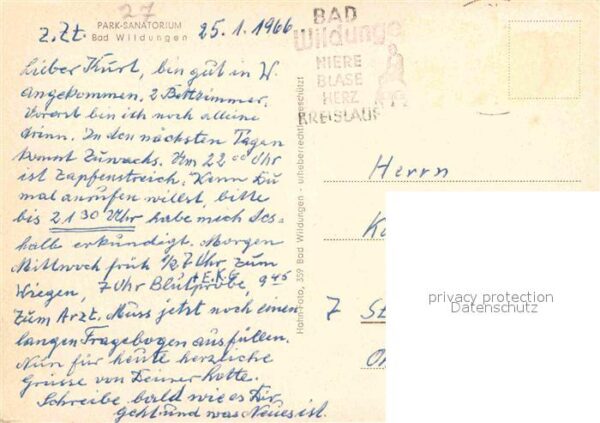 27
PARK-SANATORIUM
Bad Wildungen
z. Zt. 25.1.1966
Lieber Kurt, bin gut in W.
angekommen. 2 Bettzimmer.
Vorerst bin ich noch alleine
drinn. In den nächsten Tagen
kommt Zuwachs. Um 22 00 Uhr
ist Zapfenstreich. Wenn Du
mal anrufen willst, bitte
bis 21 30 Uhr habe mich des-
halb erkundigt. Morgen
Mittwoch früh 1/2 7 Uhr zum
Wiegen, 7 Uhr Blutprobe, + E.K.G. 9 45
zum Arzt. Muss jetzt noch einen
langen Fragebogen ausfüllen.
Nun für heute herzliche
Grüsse von Deiner Lotte.
Schreibe bald wie es Dir
geht und was Neues ist.
BAD
Wildunge
NIERE
BLASE
HERZ
KREISLAUF
Hahn-Foto, 359 Bad Wildungen - urheberrechtlich geschützt
Herrn
7 St
privacy protection
Datenschutz